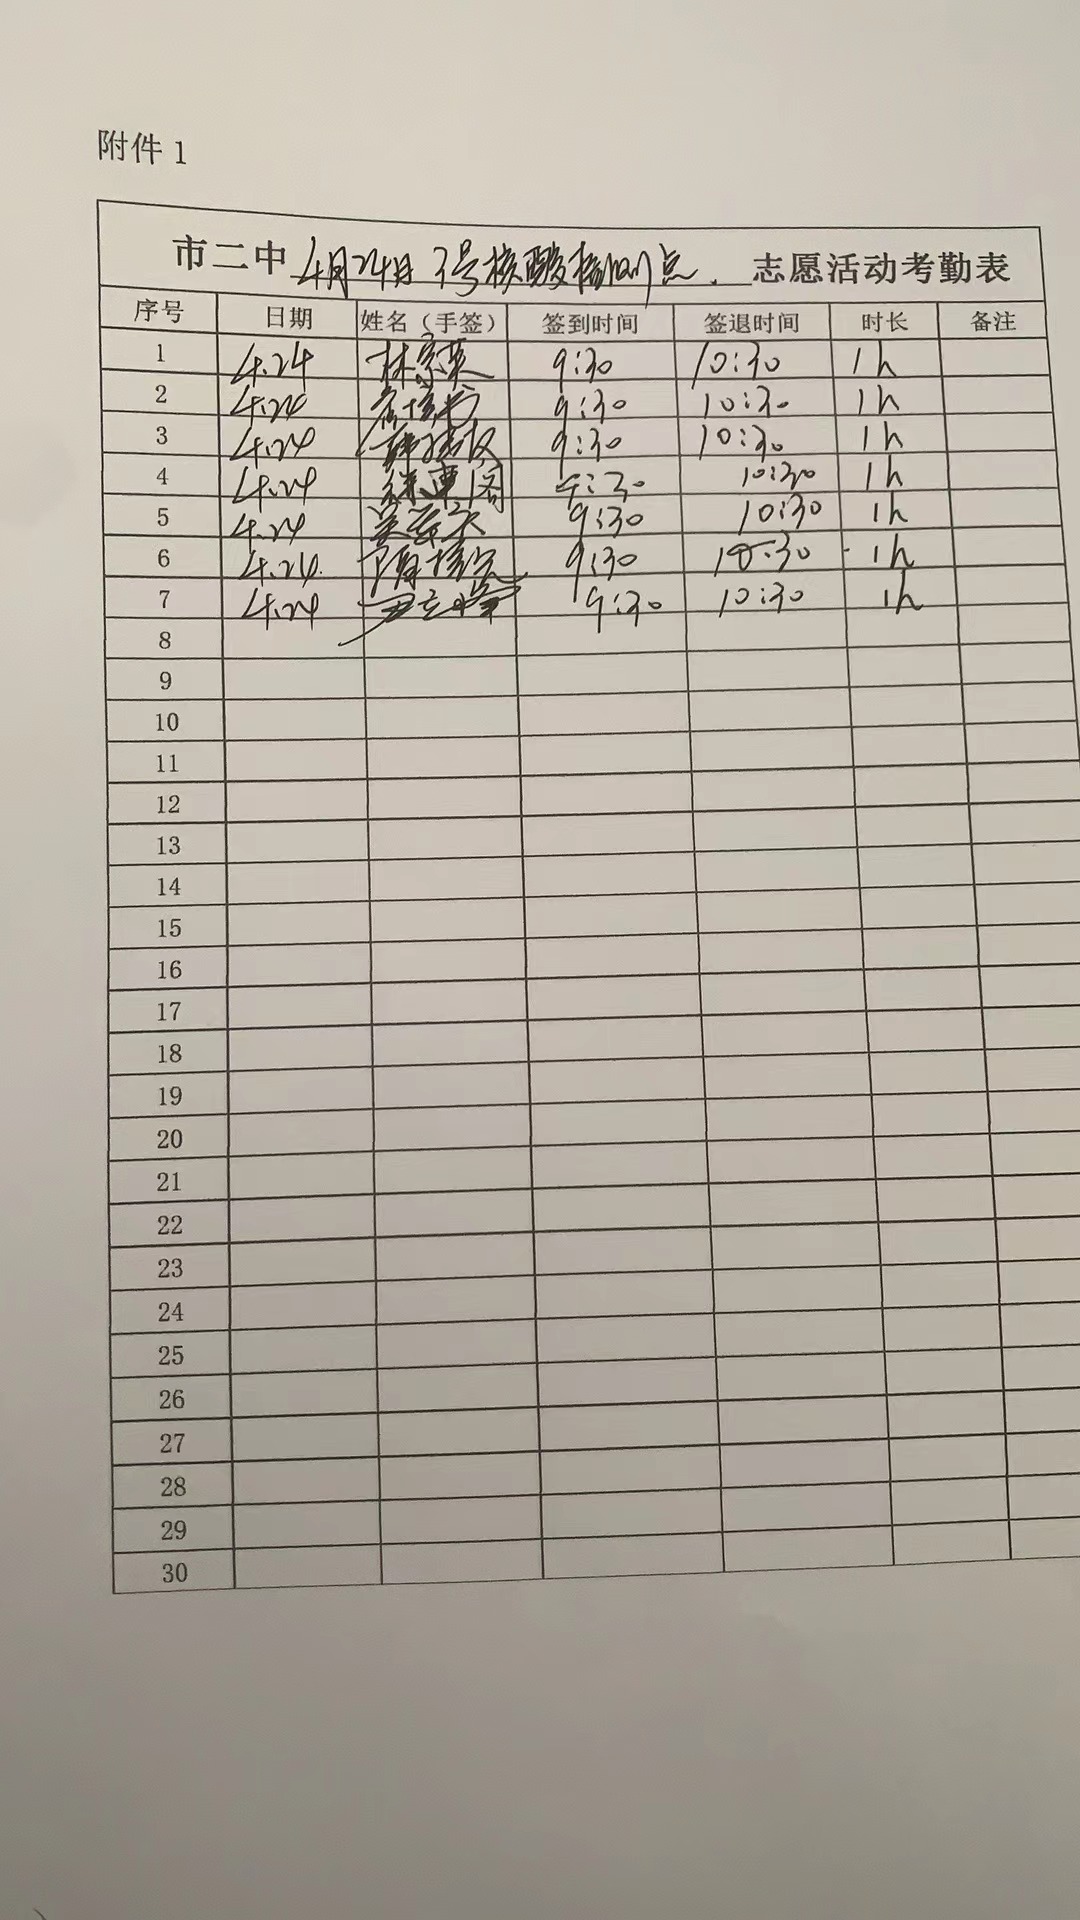 附件 1
市二中 4月24日 3号核酸检测点. 志愿活动考勤表
序号 日期 姓名（手签） 签到时间 签退时间 时长 备注
1 4.24 林宗英 9:30 10:30 1h
2 4.24 9:30 10:30 1h
3 4.24 9:30 10:30 1h
4 4.24 :30 10:30 1h
5 4.24 9:30 10:30 1h
6 4.24. 9:30 10:30 1h
7 4.24 9:30 10:30 1h
8
9
10
11
12
13
14
15
16
17
18
19
20
21
22
23
24
25
26
27
28
29
30